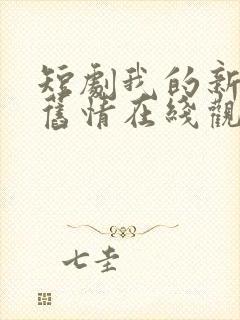 短劇我的新
舊情在綫觀
七圭